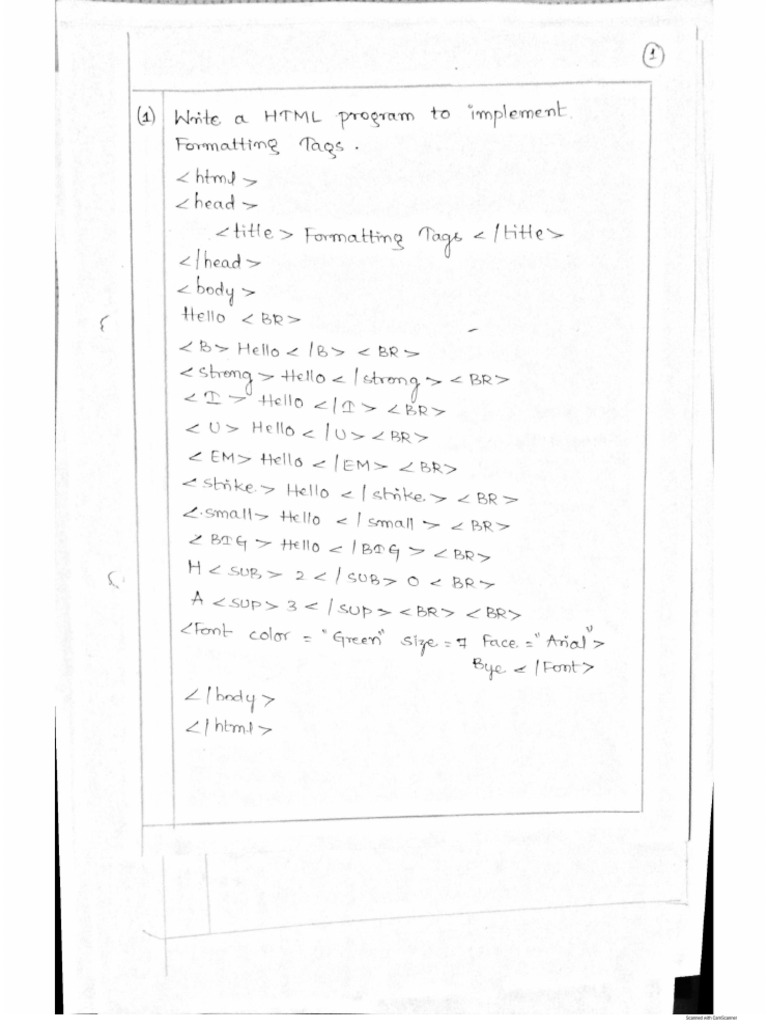 1
(1) Write a HTML program to implement
Formatting Tags.
<html>
<head>
<title> Formatting Tags </title>
</head>
<body>
Hello <BR>
<B> Hello </B> <BR>
<strong> Hello </strong> <BR>
<I> Hello </I> <BR>
<U> Hello </U> <BR>
<EM> Hello </EM> <BR>
<strike> Hello </strike> <BR>
<small> Hello </small> <BR>
<BIG> Hello </BIG> <BR>
H <SUB> 2 </SUB> O <BR>
A <SUP> 3 </SUP> <BR> <BR>
<Font color = "Green" size = 7 Face = "Arial">
Bye </Font>
</body>
</html>
Scanned with CamScanner